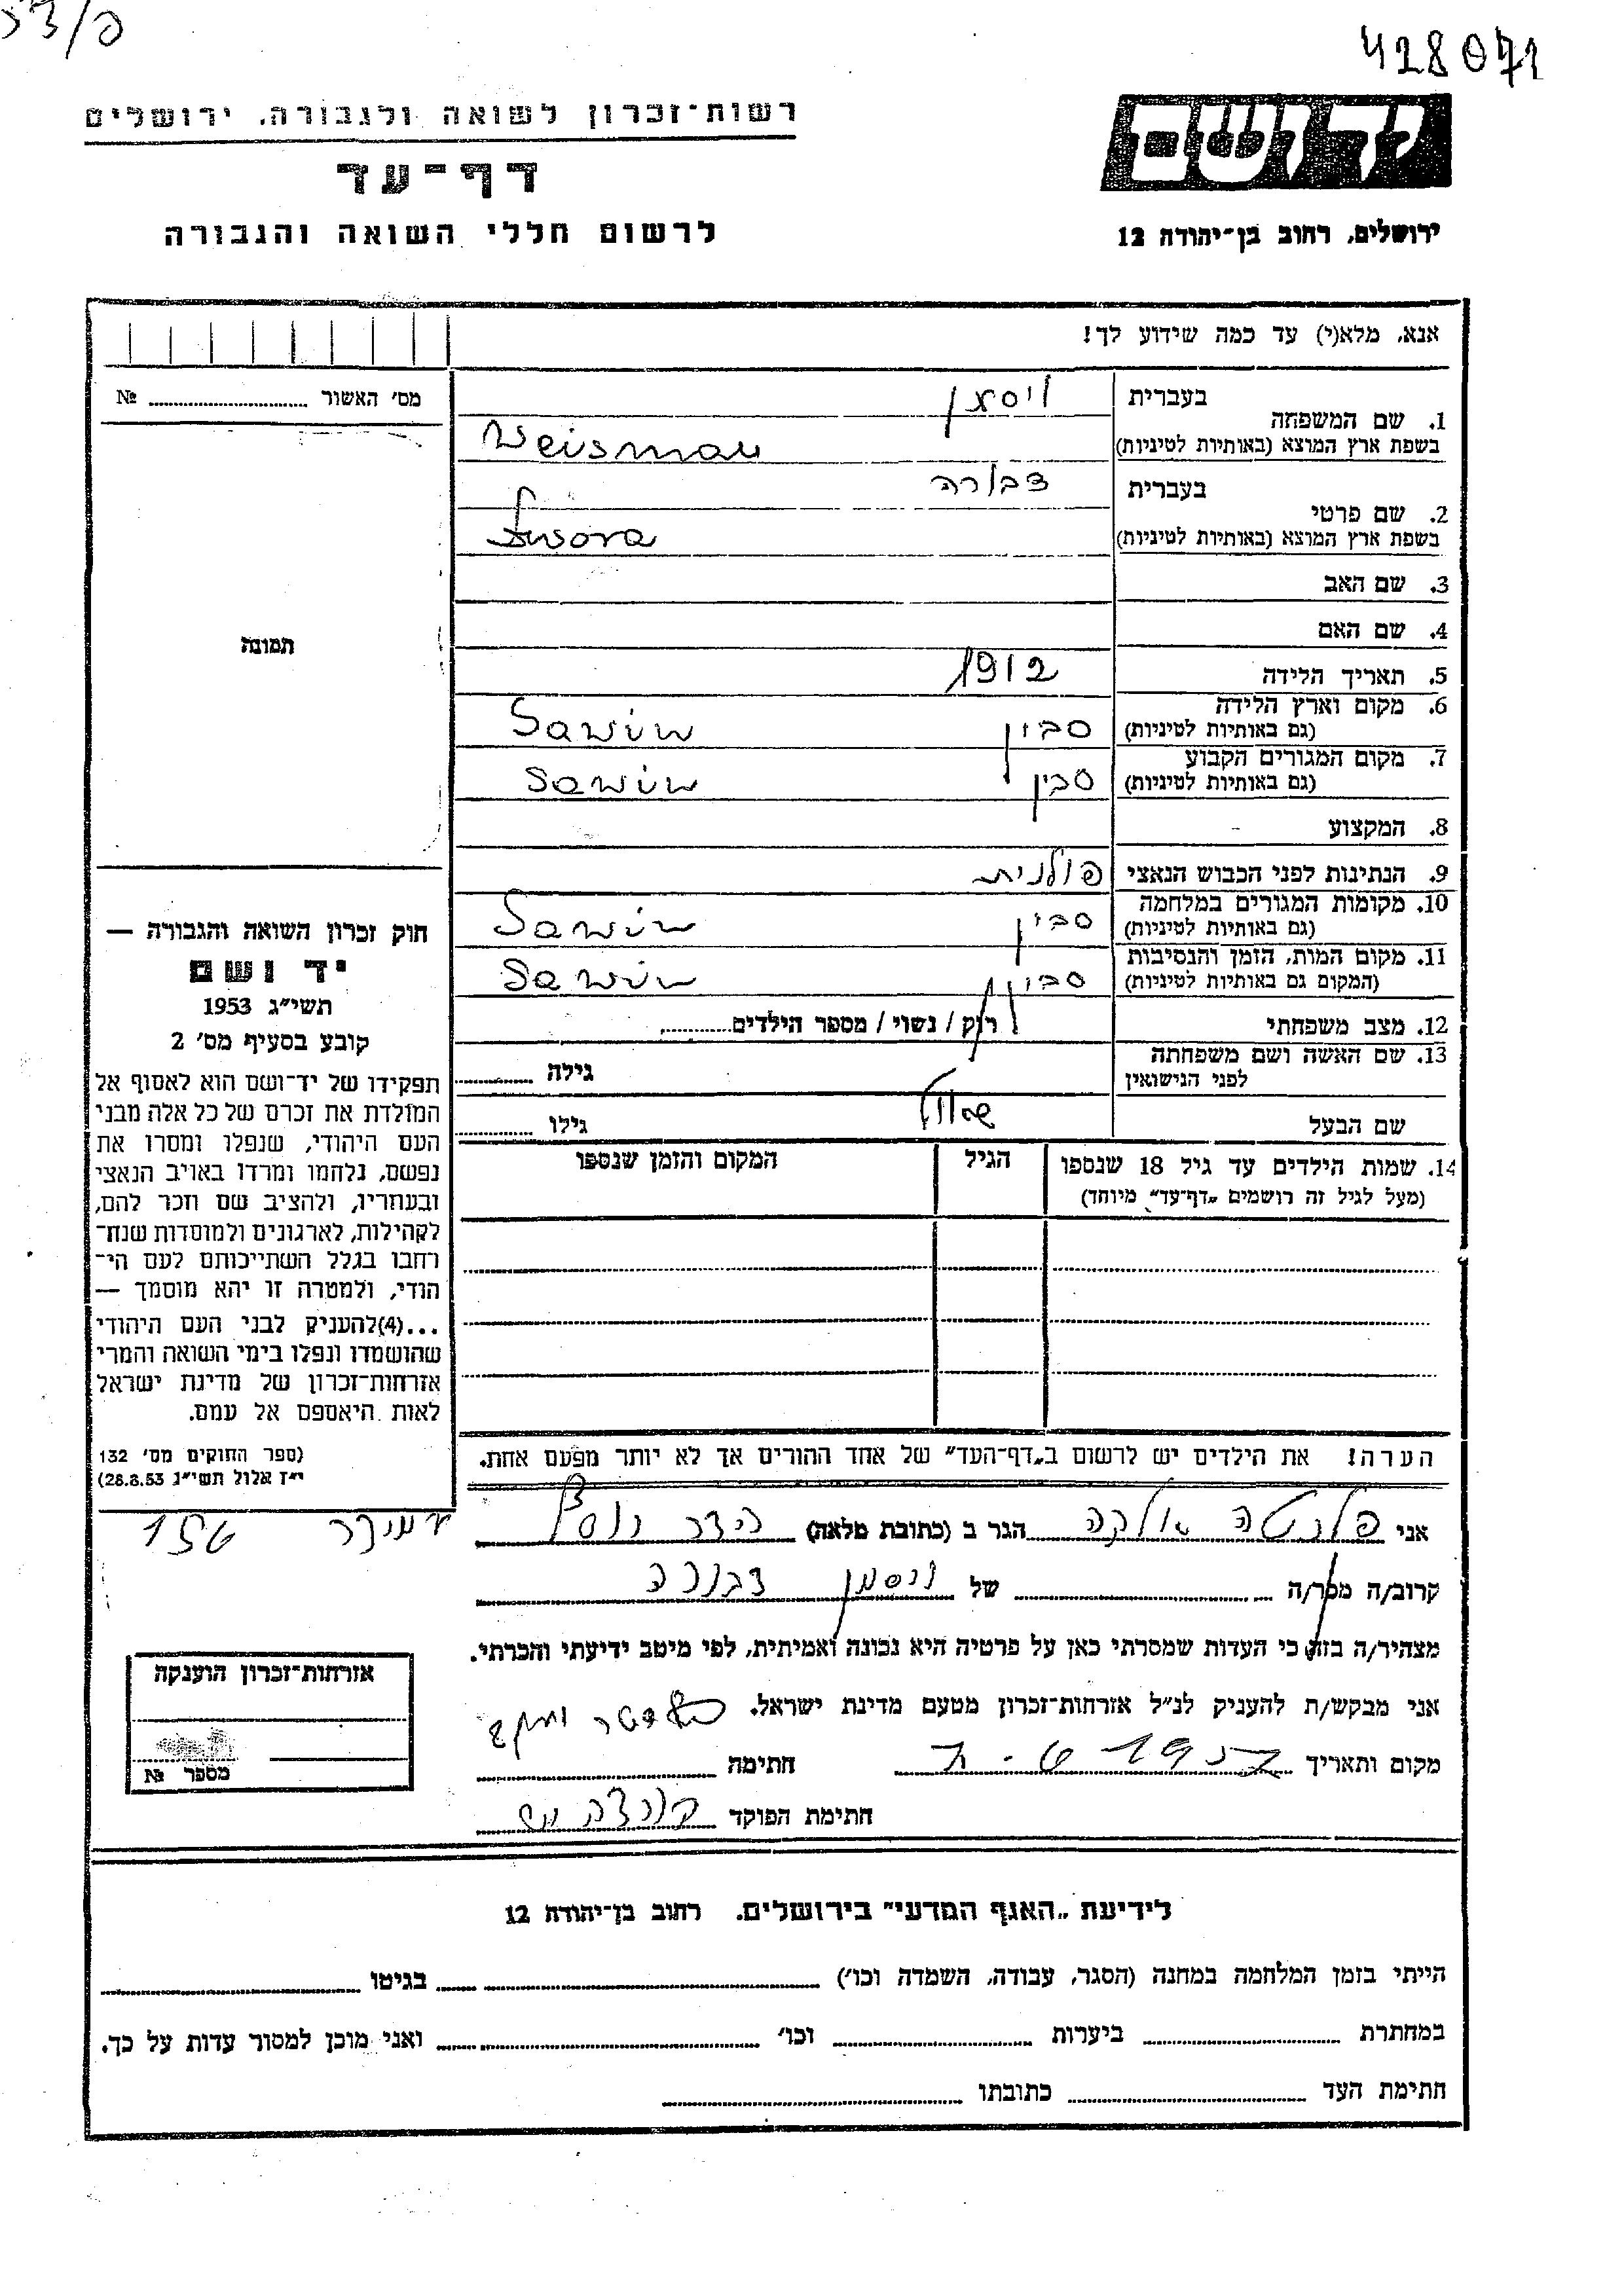 428071
רשות-זכרון לשואה ולגבורה, ירושלים
יד ושם
דף-עד
לרשום חללי השואה והגבורה
ירושלים, רחוב בן-יהודה 12
אנא, מלא(י) עד כמה שידוע לך!
מס׳ האשור № 
בעברית ויסמן
1. שם המשפחה
בשפת ארץ המוצא (באותיות לטיניות) Weisman
בעברית דבורה
2. שם פרטי
בשפת ארץ המוצא (באותיות לטיניות)
3. שם האב
4. שם האם
תמונה
5. תאריך הלידה 1912
6. מקום וארץ הלידה
(גם באותיות לטיניות) סבין Sawin
7. מקום המגורים הקבוע
(גם באותיות לטיניות) סבין Sawin
8. המקצוע
9. הנתינות לפני הכבוש הנאצי פולנית
10. מקומות המגורים במלחמה
(גם באותיות לטיניות) סבין Sawin
11. מקום המות, הזמן והנסיבות
(המקום גם באותיות לטיניות) סבין Sawin
12. מצב משפחתי רוק / נשוי / מספר הילדים
13. שם האשה ושם משפחתה
לפני הנישואין גילה
שם הבעל שאול גילו
14. שמות הילדים עד גיל 18 שנספו הגיל המקום והזמן שנספו
(מעל לגיל זה רושמים „דף-עד״ מיוחד)
חוק זכרון השואה והגבורה —
יד ושם
תשי״ג 1953
קובע בסעיף מס׳ 2
תפקידו של יד-ושם הוא לאסוף אל
המולדת את זכרם של כל אלה מבני
העם היהודי, שנפלו ומסרו את
נפשם, נלחמו ומרדו באויב הנאצי
ובעוזריו, ולהציב שם וזכר להם,
לקהילות, לארגונים ולמוסדות שנח-
רבו בגלל השתייכותם לעם הי-
הודי, ולמטרה זו יהא מוסמך —
...(4)להעניק לבני העם היהודי
שהושמדו ונפלו בימי השואה והמרי
אזרחות-זכרון של מדינת ישראל
לאות היאספם אל עמם.
(ספר החוקים מס׳ 132
י״ז אלול תשי״ג 28.8.53)
הערה! את הילדים יש לרשום ב„דף-העד״ של אחד ההורים אך לא יותר מפעם אחת.
אני הגר ב (כתובת מלאה) הדר יוסף
156
קרוב/ה מכר/ה של ויסמן דבורה
מצהיר/ה בזה כי העדות שמסרתי כאן על פרטיה היא נכונה ואמיתית, לפי מיטב ידיעתי והכרתי.
אני מבקש/ת להעניק לנ״ל אזרחות-זכרון מטעם מדינת ישראל.
מקום ותאריך חתימה
חתימת הפוקד
אזרחות-זכרון הוענקה
מספר №
לידיעת „האגף המדעי״ בירושלים. רחוב בן-יהודה 12
הייתי בזמן המלחמה במחנה (הסגר, עבודה, השמדה וכו׳) בגיטו
במחתרת ביערות וכו׳ ואני מוכן למסור עדות על כך.
חתימת העד כתובתו